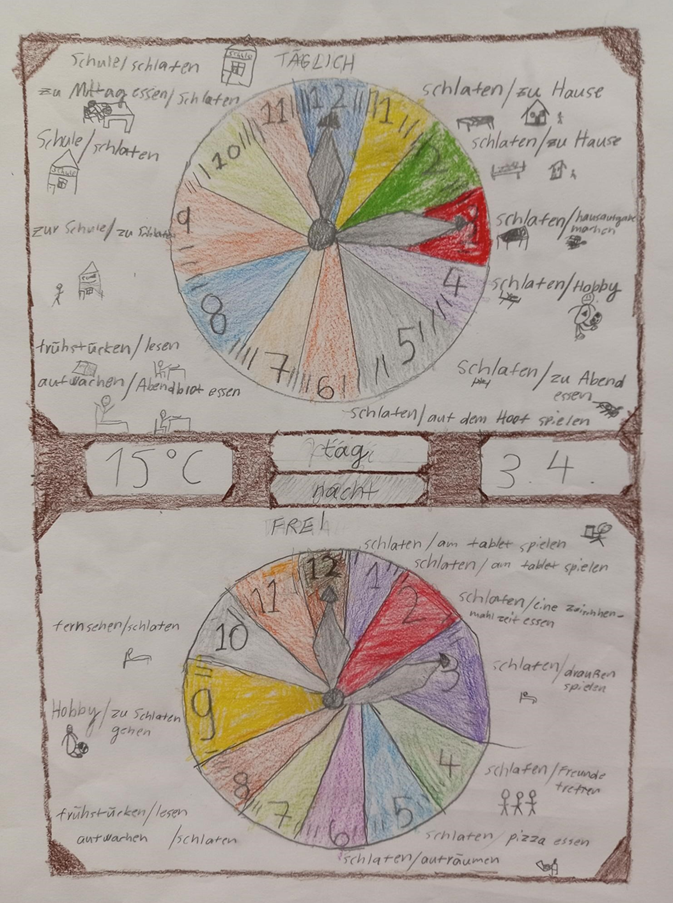 TÄGLICH
Schule/schlafen
SCHULE
zu Mittag essen/schlafen
Schule/schlafen
SCHULE
zur Schule/zu
frühstücken/lesen
aufwachen/Abendbrot essen
schlafen/zu Hause
schlafen/zu Hause
schlafen/hausaufgabe
machen
schlafen/Hobby
schlafen/zu Abend
essen
schlafen/auf dem Hoof spielen
12
1
2
4
5
6
7
8
9
10
11
15°C
tag
nacht
3.4.
FREI
schlafen/am tablet spielen
schlafen/am tablet spielen
schlafen/eine
mahlzeit essen
schlafen/draußen
spielen
schlafen/Freunde
treffen
schlafen/pizza essen
schlafen/aufräumen
fernsehen/schlafen
Hobby/zu Schlafen
gehen
frühstücken/lesen
aufwachen/schlafen
12
1
2
3
4
5
6
7
8
9
10
11